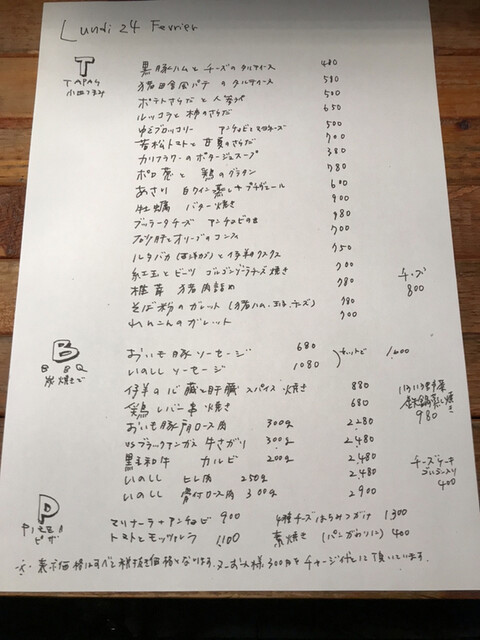 Lundi 24 Fevrier
T
TAPAS
小皿つまみ
黒豚ハムとチーズのタルティーヌ 480
猪田舎風パテのタルティーヌ 580
ポテトさらだと人参 500
ルッコラと柿のさらだ 650
ゆでブロッコリー アンチョビマヨネーズ 500
苦松トマトと甘夏のさらだ 700
カリフラワーのポタージュスープ 380
ポロ葱と鶏のグラタン 780
あさり 白ワイン蒸し 600
牡蠣 バター焼き 900
ブッラータチーズ アンチョビ 980
砂肝とオリーブのコンフィ 700
と仔羊クスクス 750
紅玉とビーツ ゴルゴンゾーラチーズ焼き 700
椎茸 猪肉詰め 780
そば粉のガレット (猪ハム、玉子、チーズ) 980
れんこんのガレット 700
チーズ
800
B
BBQ
炭焼きで
おいも豚ソーセージ 680
いのししソーセージ 1080
1600
仔羊の心臓と肝臓 スパイス焼き 880
鶏レバー串焼き 680
おいも豚肩ロース肉 300g 2280
USブラックアンガス牛さがり 300g 2,480
黒毛和牛 カルビ 200g 2,480
いのしし ヒレ肉 250g 2,480
いのしし 骨付ロース肉 300g 2900
いろいろ野菜
鉄鍋蒸し焼き
980
チーズケーキ
400
P
PIZZA
ピザ
マリナーラ+アンチョビ 900
4種チーズはちみつがけ 1300
トマトとモッツァレラ 1,100
素焼き (パンがわりに) 400
※ 表示価格はすべて税抜き価格となります。又、お1人様300円をチャージ代として頂いています。